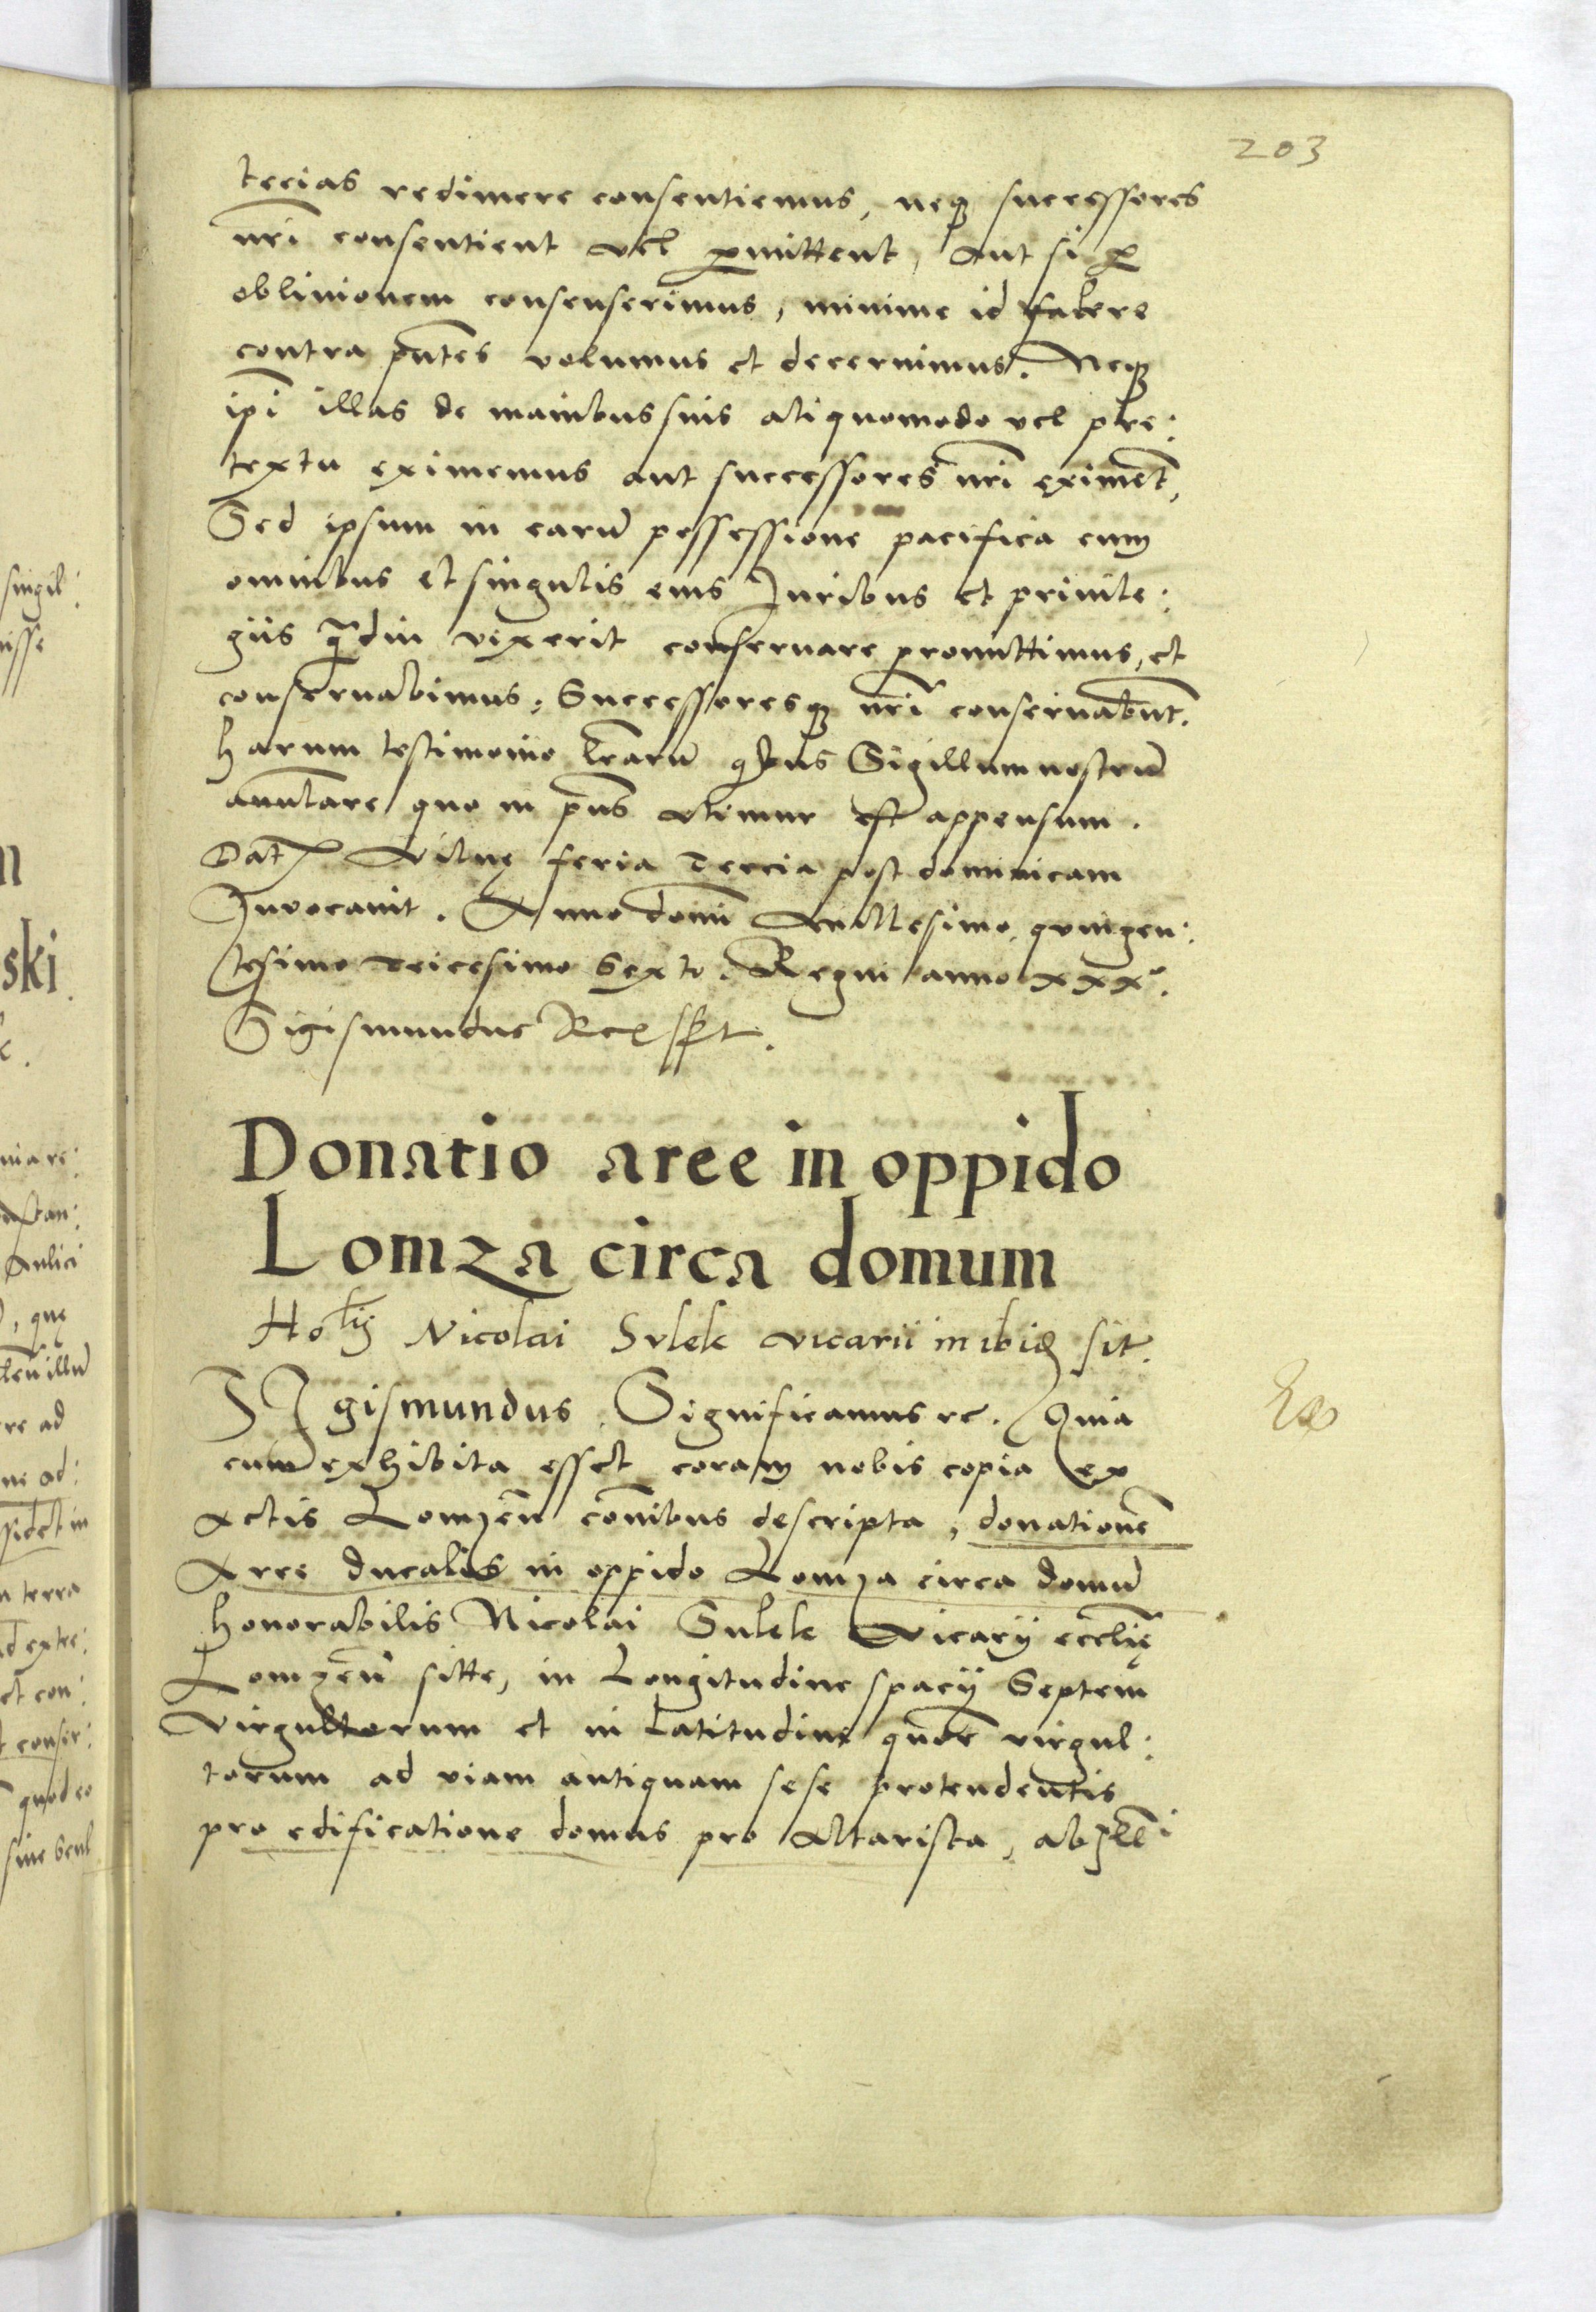 203
tecias redimere consentiemus, neq3 successores
nr̃i consentient vel p̱mittent, Aut si p̱
oblivionem consenserimus, minime id valere
contra pñtes volumus et decernimus. Neq3
ip̃i illas de manibus suis aliquomodo vel pre:
textu eximemus aut successores nr̃i eximẽt,
Sed ipsum in earũ possessione pacifica cum
omnibus et singulis eius Juribus et privile:
giis q̃diu vixerit conservare promittimus, et
conservabimus, Successoresq3 nr̃i conservabũt.
Harum testimonio lr̃arũ quibus Sigillum nostrũ
annulare quo in pñs utimur est appensum.
Dat Vilnę feria Tercia post dominicam
Invocavit. Anno domĩ Millesimo, quingen:
tesimo Tricesimo Sexto. Regni anno xxx°.
Sigismundus Rex sst.
Donatio aree in oppido
Lomza circa domum
Holis Nicolai Sulek vicarii in ibid sit.
Sigismundus. Significamus rc. Quia
cum exhibita esset coram nobis copia ex
Actis Lomzeñ cõnibus descripta, donationẽ
Aree ducalis in oppido Lomza circa domũ
honorabilis Nicolai Sulek Vicarij ecclię
Lomzeñ sitte, in Longitudine spacij Septem
virgultorum et in Latitudine virgul:
torum ad viam antiquam sese protendentis
pro edificatione domus pro Altarista,